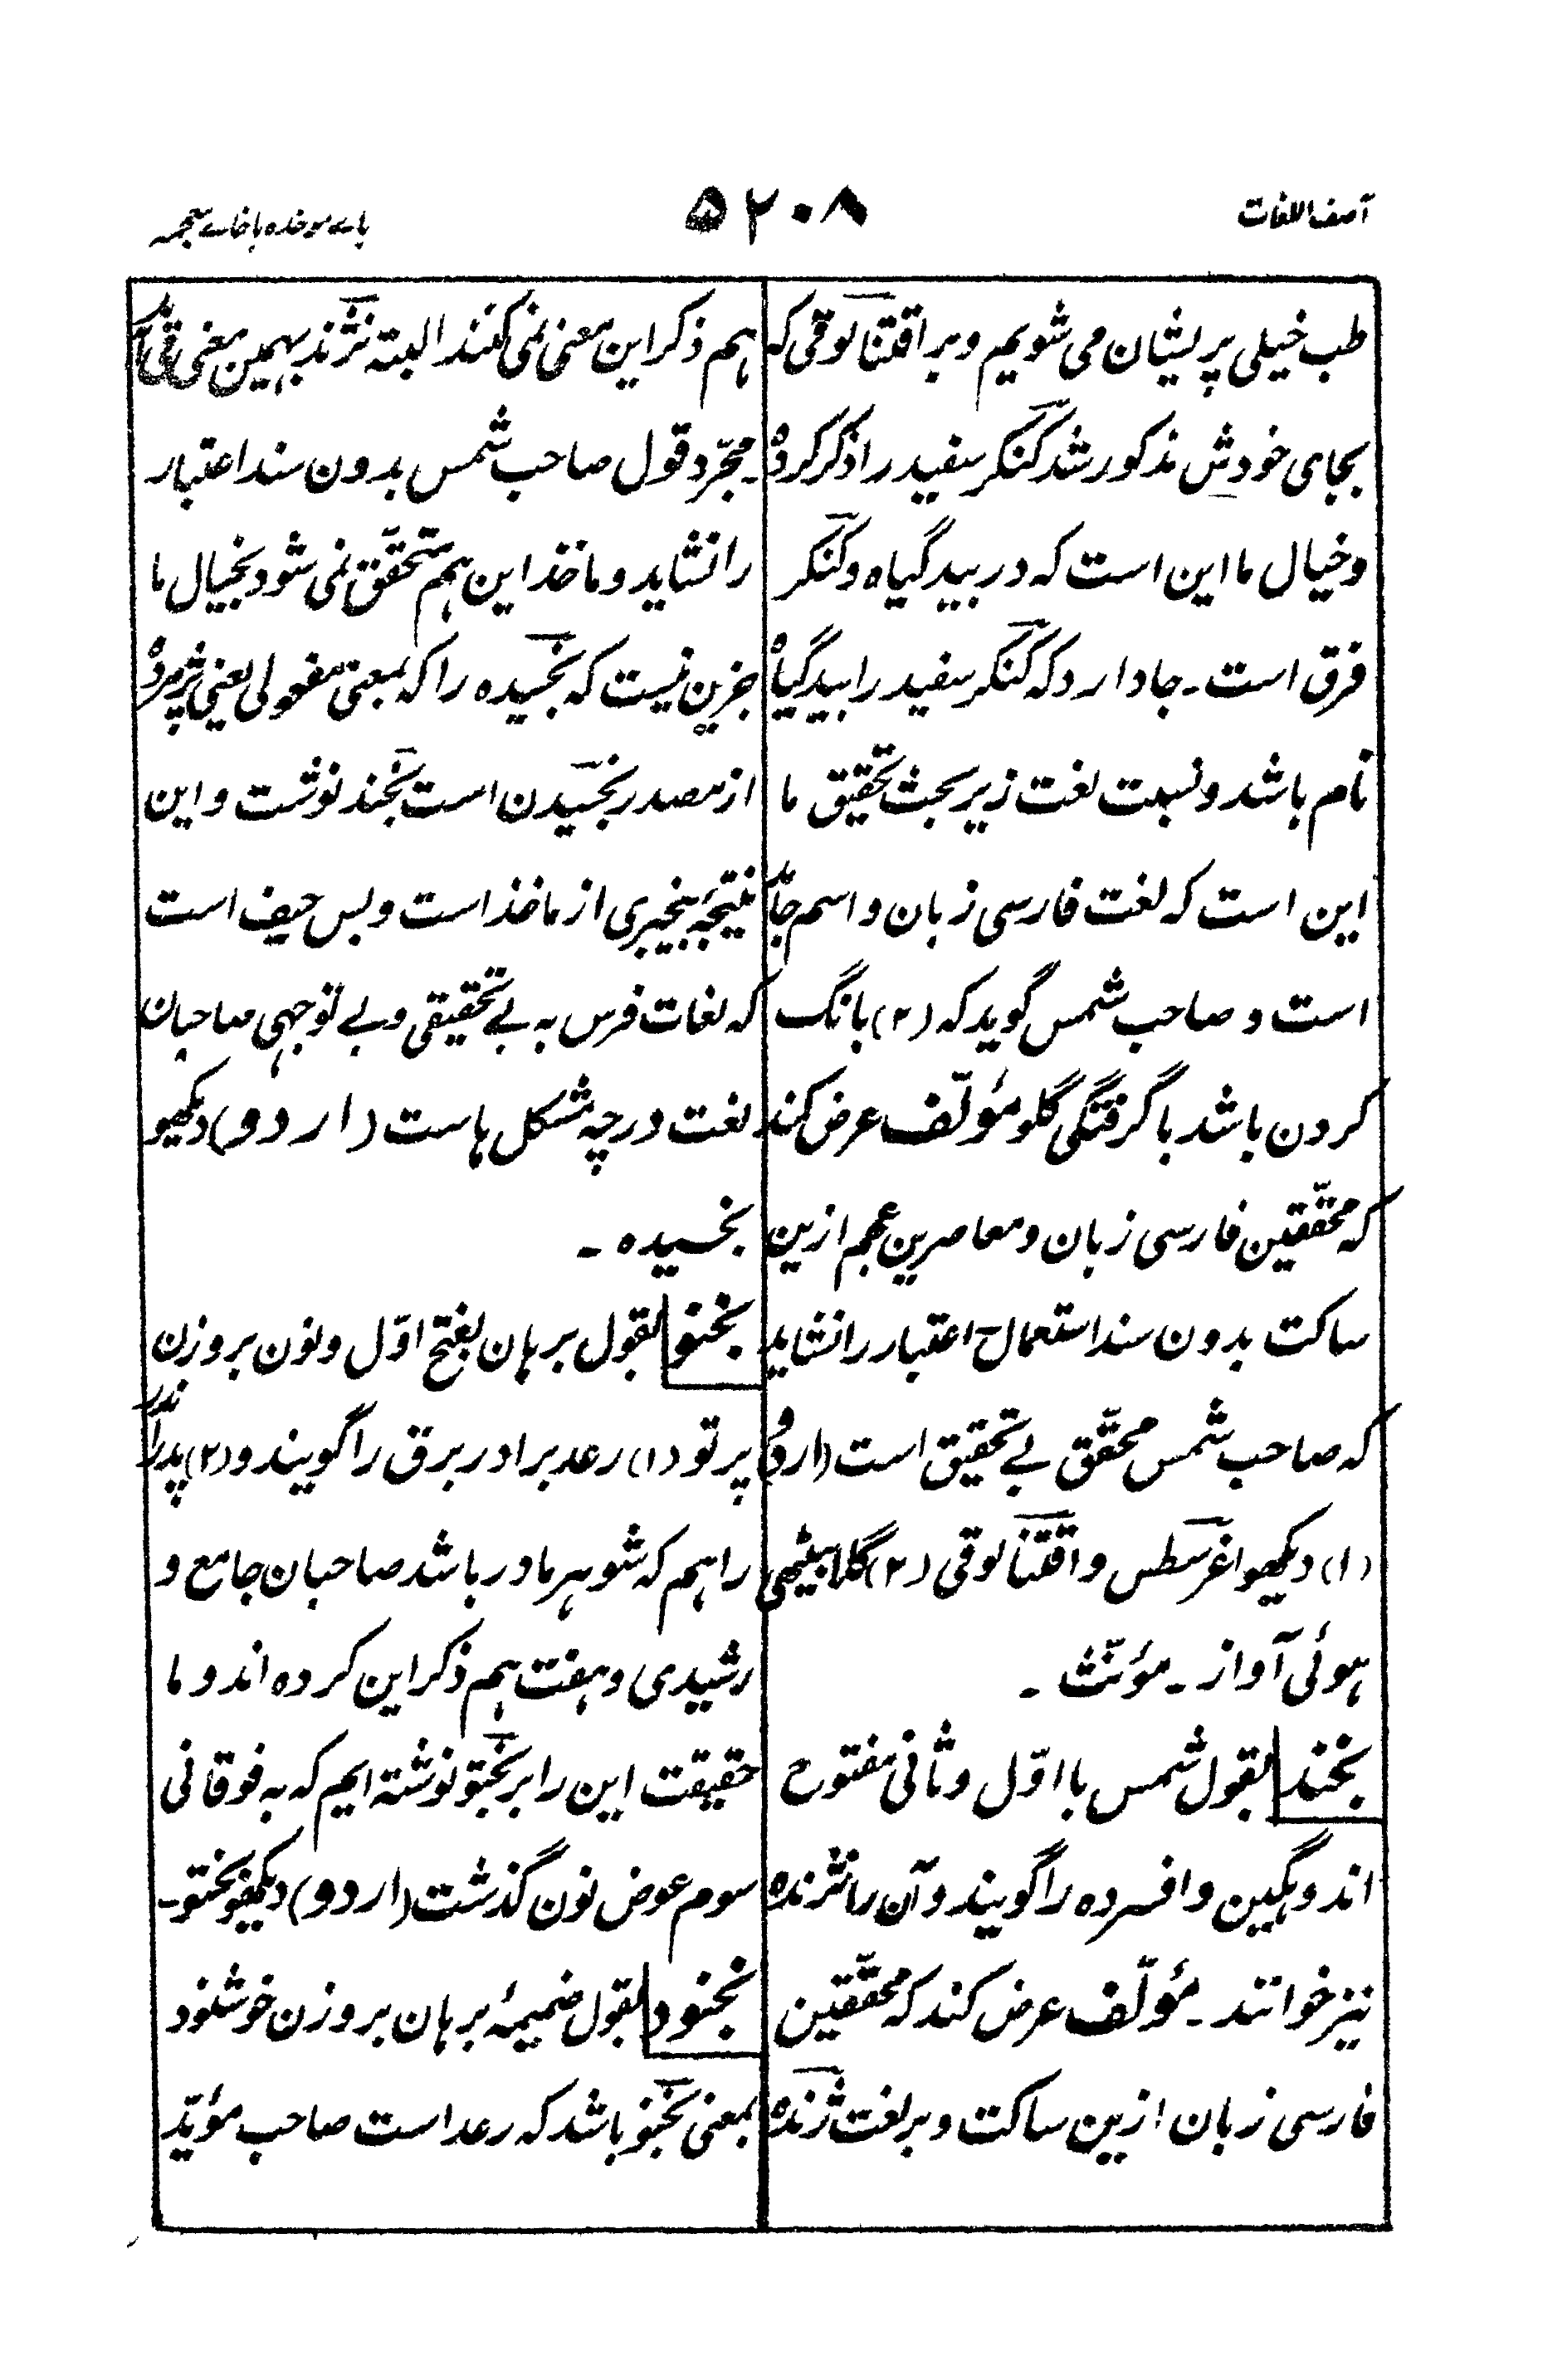 آصف اللغات
۵۲۰۸
باے موحده باخاے معجمہ
طب خیلی پریشان می شویم و بر اقتنا لوقی که
بجای خودش مذکور شد کنگر سفید را ذکر کرده
و خیال ما این است که در بید گیاه و کنگر
فرق است ۔ جا دارد که کنگر سفید را بید گیاه
نام باشد و نسبت لغت زیر بحث تحقیق ما
این است که لغت فارسی زبان و اسم جامد
است و صاحب شمس گوید که (۲) بانگ
کردن باشد با گرفتگی گلو مؤلّف عرض کند
که محقّقین فارسی زبان و معاصرین عجم ازین
ساکت بدون سند استعمال اعتبار را نشاید
که صاحب شمس محقّق بے تحقیق است (اردو)
(۱) دیکھو اغرسطس و اقتنا لوقی (۲) گلا بیٹھی
ہوئی آواز ۔ مؤنّث ۔
بخند بقول شمس با اوّل و ثانی مفتوح
اندوہگین و افسرده را گویند و آن را نژنده
نیز خوانند ۔ مؤلّف عرض کند که محقّقین
فارسی زبان ازین ساکت و بر لغت نژنده
ہم ذکر این معنی نمی کنند البته نژند بہمین معنی
۔ مجرّد قول صاحب شمس بدون سند اعتبار
را نشاید و ماخذ این ہم متحقّق نمی شود بخیال ما
جزین نیست که بخسیده را که بمعنی مفعولی یعنی پژمرده
از مصدر بخسیدن است بخند نوشت و این
نتیجۂ بیخبری از ماخذ است و بس حیف است
که لغات فرس به بے تحقیقی و بے توجہی صاحبان
لغت درچه مشکل ہاست (اردو) دیکھو
بخسیده ۔
بخنو بقول برہان بفتح اوّل و نون بروزن
پرتو (۱) رعد برادر برق را گویند و (۲) پدر اندر
را ہم که شوہر مادر باشد صاحبان جامع و
رشیدی و ہفت ہم ذکر این کرده اند و ما
حقیقت این را بر بختو نوشته ایم که به فوقانی
سوم عوض نون گذشت (اردو) دیکھو بختو ۔
بخنود بقول ضمیمۂ برہان بروزن خوشنود
بمعنی بخنو باشد که رعد است صاحب مؤیّد